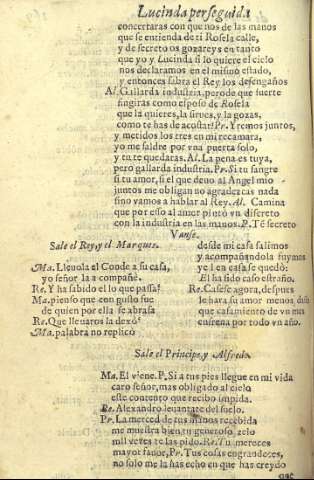 Lucinda perseguida
concertaras con que nos de las manos
que se entienda de ti Rosela calle,
y de secreto os gozareys en tanto
que yo y Lucinda si lo quiere el cielo
nos declaramos en el mismo estado,
y entonces sabra el Rey los desengaños
Al. Gallarda industria, pero de que suerte
fingiras como esposo de Rosela
que la quieres, la sirues, y la gozas,
como te has de acostar? Pr. Yremos juntos,
y metidos los tres en mi recamara,
yo me saldre por vna puerta solo,
y tu te quedaras. Al. La pena es tuya,
pero gallarda industria. Pr. Si tu sangre
si tu amor, si el que deuo al Angel mio
juntos me obligan no agradezcas nada
sino vamos a hablar al Rey. Al. Camina
que por esso al amor pintó vn discreto
con la industria en las manos. P. Té secreto
Vanse.
Sale el Rey, y el Marques.
Ma. Lleuola el Conde a su casa,
yo señor la a compañé.
Re. Y ha sabido ello que passa?
Ma. pienso que con gusto fue
de quien por ella se abrasa
Re. Que lleuaros la dexò?
Ma. palabra no replicò
desde mi casa salimos
y acompañandola fuymos
ye l en casa se quedò:
El ha sido caso estraño.
Re. Casese agora, despues
le hara su amor menos daño
que casamiento de vn mes
enseña por todo vn año.
Sale el Principe, y Alfredo.
Ma. El viene. P. Si a tus pies llegue en mi vida
caro señor, mas obligado al cielo
este contento que recibo impida.
Re. Alexandro leuantate del suelo.
Pr. La merced de tus manos recebida
me muestra bien tu generoso zelo
mil vezes te las pido. Re. Tu mereces
mayor fauor, Pr. Tus cosas engrandeces,
no solo me la has echo en que has creydo
que